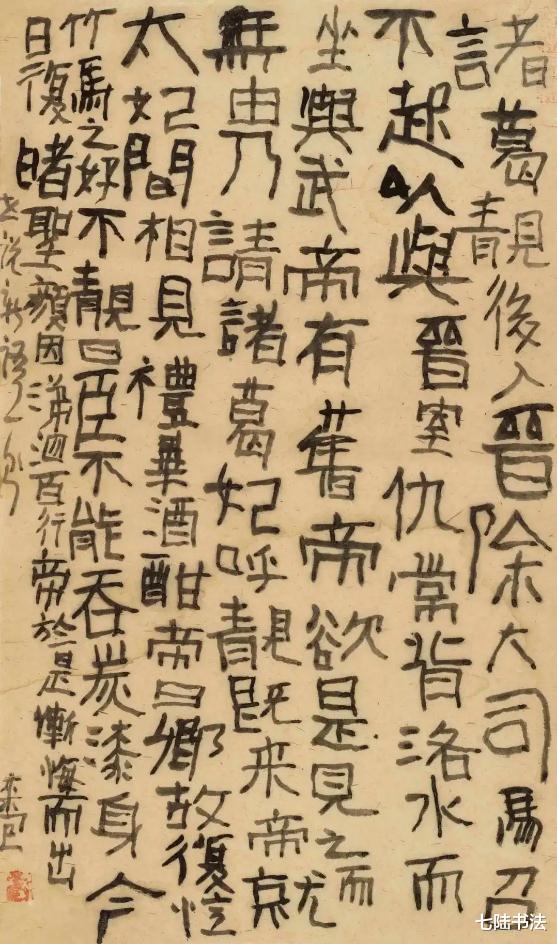 諸葛靚後入晉除大司馬召
不起以與晉室仇常背洛水而
坐與武帝有舊帝欲是見之而
無由乃請諸葛妃呼靚既来帝就
太妃間相見禮畢酒酣帝曰卿故復憶
竹馬之好不靚曰臣不能吞炭漆身今
日復睹聖顏因涕泗百行帝於是慚悔而出
世説新語一則
七陆书法